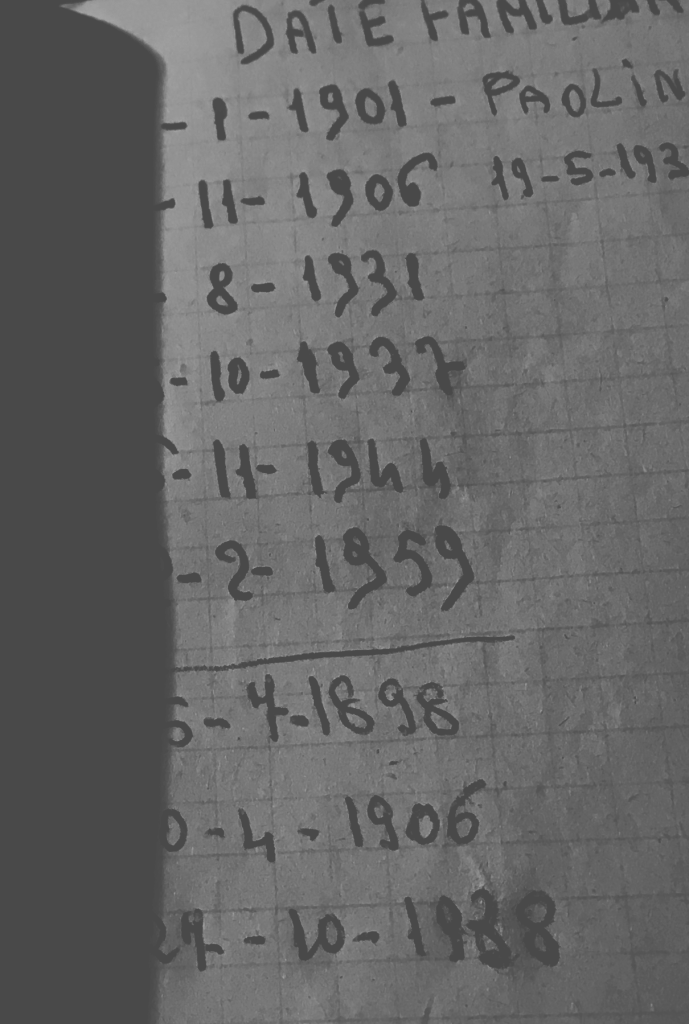 DATE FAMILIAR
- 1 - 1901 - PAOLIN
- 11 - 1906 19-5-193
- 8 - 1931
- 10 - 1937
- 11 - 1944
- 2 - 1959
6 - 7-1898
0 - 4 - 1906
27 - 10 - 1938